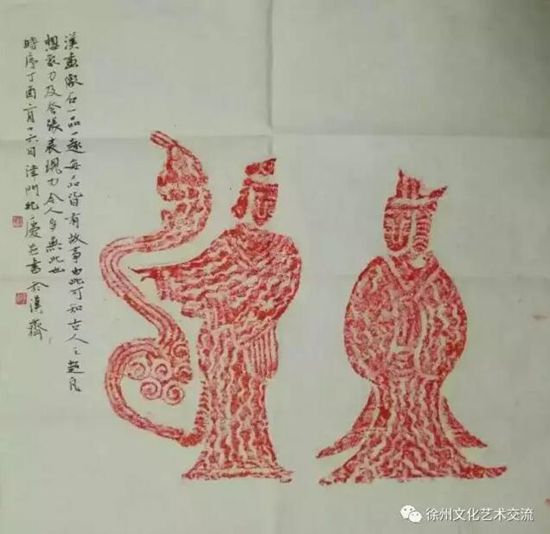 漢画像石一品一趣每品皆有故事由此可知古人之超凡
想象力及夸張表現力令人無此也
時序丁酉月十六日津門慶書於漢齋
徐州文化艺术交流